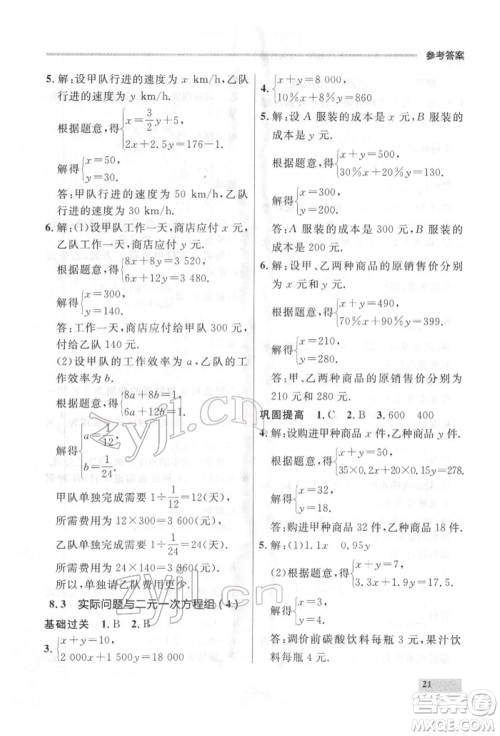 参考答案
5. 解：设甲队行进的速度为 x km/h，乙队
行进的速度为 y km/h.
根据题意，得{x=3/2y+5,
2x+2.5y=176-1.
解得{x=50,
y=30.
答：甲队行进的速度为 50 km/h，乙队
行进的速度为 30 km/h.
6. 解：(1)设甲队工作一天，商店应付 x 元，
乙队工作一天，商店应付 y 元.
根据题意，得{8x+8y=3 520,
6x+12y=3 480.
解得{x=300,
y=140.
答：工作一天，商店应付给甲队 300 元，应
付给乙队 140 元.
(2)设甲队的工作效率为 a，乙队的工作
效率为 b.
根据题意，得{8a+8b=1,
6a+12b=1.
解得{a=1/12,
b=1/24.
甲队单独完成需要 1÷1/12=12(天)，
所需费用为 12×300=3 600(元)，
乙队单独完成需要 1÷1/24=24(天)，
所需费用为 24×140=3 360(元).
所以，单独请乙队费用更少.
8.3 实际问题与二元一次方程组(4)
基础过关 1.B 2.B
3. {x+y=10,
4. {x+y=8 000,
10%x+8%y=860.
5. 解：设 A 服装的成本是 x 元，B 服装的
成本是 y 元.
解得{x=300,
y=200.
答：A 服装的成本是 300 元，B 服装的
成本是 200 元.
6. 解：设甲、乙两种商品的原销售价分别
为 x 元和 y 元.
根据题意，得{x+y=490,
70%x+80%y=399.
解得{x=210,
y=280.
答：甲、乙两种商品的原销售价分别为
210 元和 280 元.
巩固提高 1.C 2.B 3.600 400
4. 解：设购进甲种商品 x 件，乙种商品 y 件.
根据题意，得{x+y=50,
35×0.2x+20×0.15y=278.
解得{x=32,
y=18.
答：购进甲种商品 32 件，乙种商品 18 件.
5. 解：(1)1.1x 0.95y
(2)根据题意，得{x+y=7,
3.3x+1.9y=17.5.
解得{x=3,
y=4.
答：调价前碳酸饮料每瓶 3 元，果汁饮
料每瓶 4 元.
21
zyjl.cn
zyjl.cn
答案圈
MXQE.COM